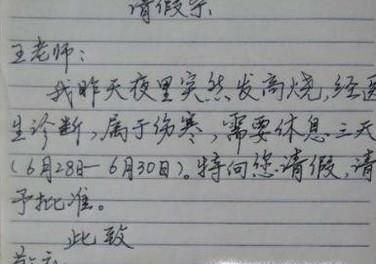 请假条
王老师：
我昨天夜里突然发高烧，经医
生诊断，属于伤寒，需要休息三天
（6月28日－6月30日）。特向您请假，请
予批准。
此致
敬礼